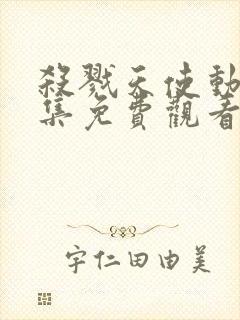 殺戮天使動
集免費觀看
宇仁田由美